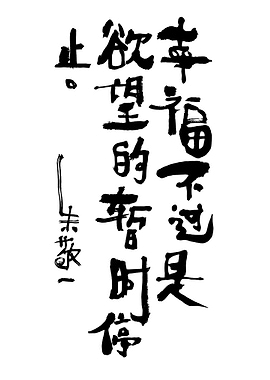 幸福不过是
欲望的暂时停
止。
——朱敬一